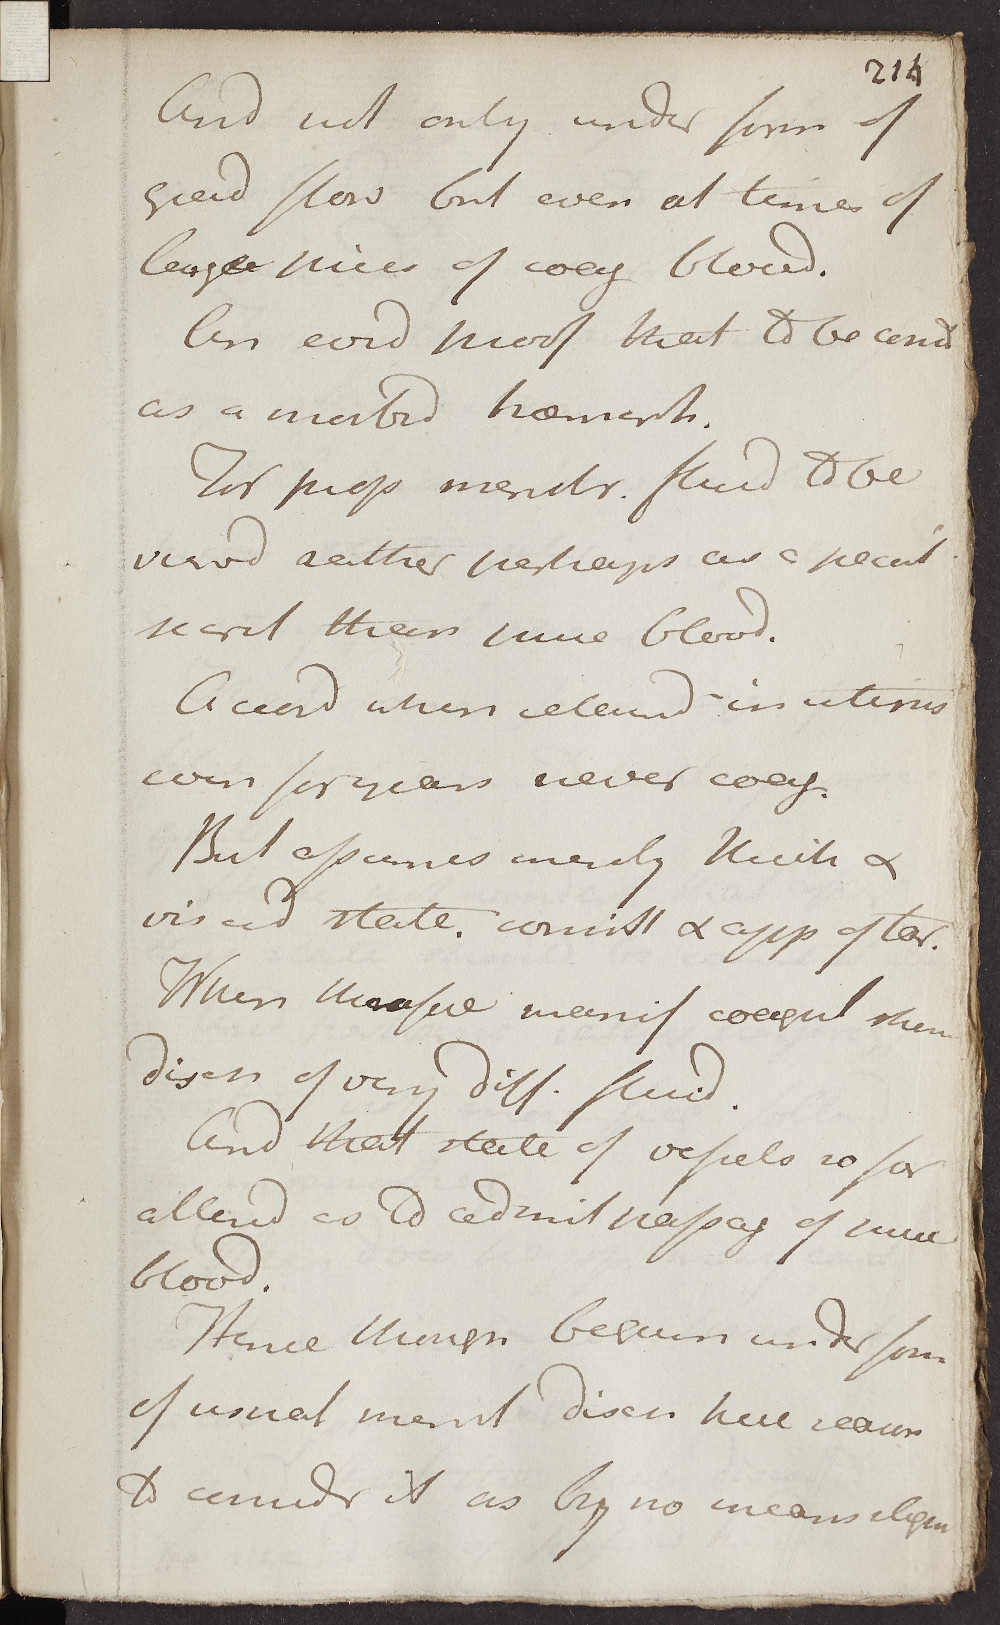 214
And not only under form of
gread flow but even at times of
large pices of coag blood.
An evid proof that to be consid
as a morbid hœmorh.
For prop menstr. fluid to be
viewd rather perhaps as a peculi
secret than pure blood.
Accord when retaind in uterus
even for years never coag.
But assumes merely thick &
viscid state. consist & app of tar.
When therefore manif coagul then
disch of very diff. fluid.
And that state of vessels so far
alterd as to admit passag of pure
blood.
Hence though begun under form
of usual menst disch have reason
to consider it as by no means